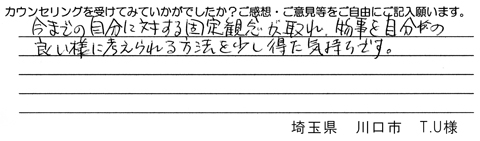 カウンセリングを受けてみていかがでしたか？ご感想・ご意見等をご自由にご記入願います。
今までの自分に対する固定観念が取れ、物事を自分やの
良い様に考えられる方法を少し得た気持ちです。
埼玉県 川口市 T.U様